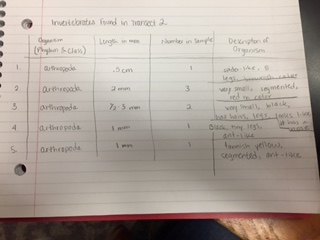 Invertebrates Found in Transect 2.
Organism (Phylum & Class) Length in mm Number in Sample Description of Organism
1. arthropoda .5cm 1 spider like, 8 legs, brownish color
2. arthropoda 2mm 3 very small, segmented, red in color
3. arthropoda 2 very small, black, legs, looks like
4 arthropoda 1 mm 1 Black, tiny legs, ant-like
5. arthropoda 1 mm 1 yellow, segmented, ant-like